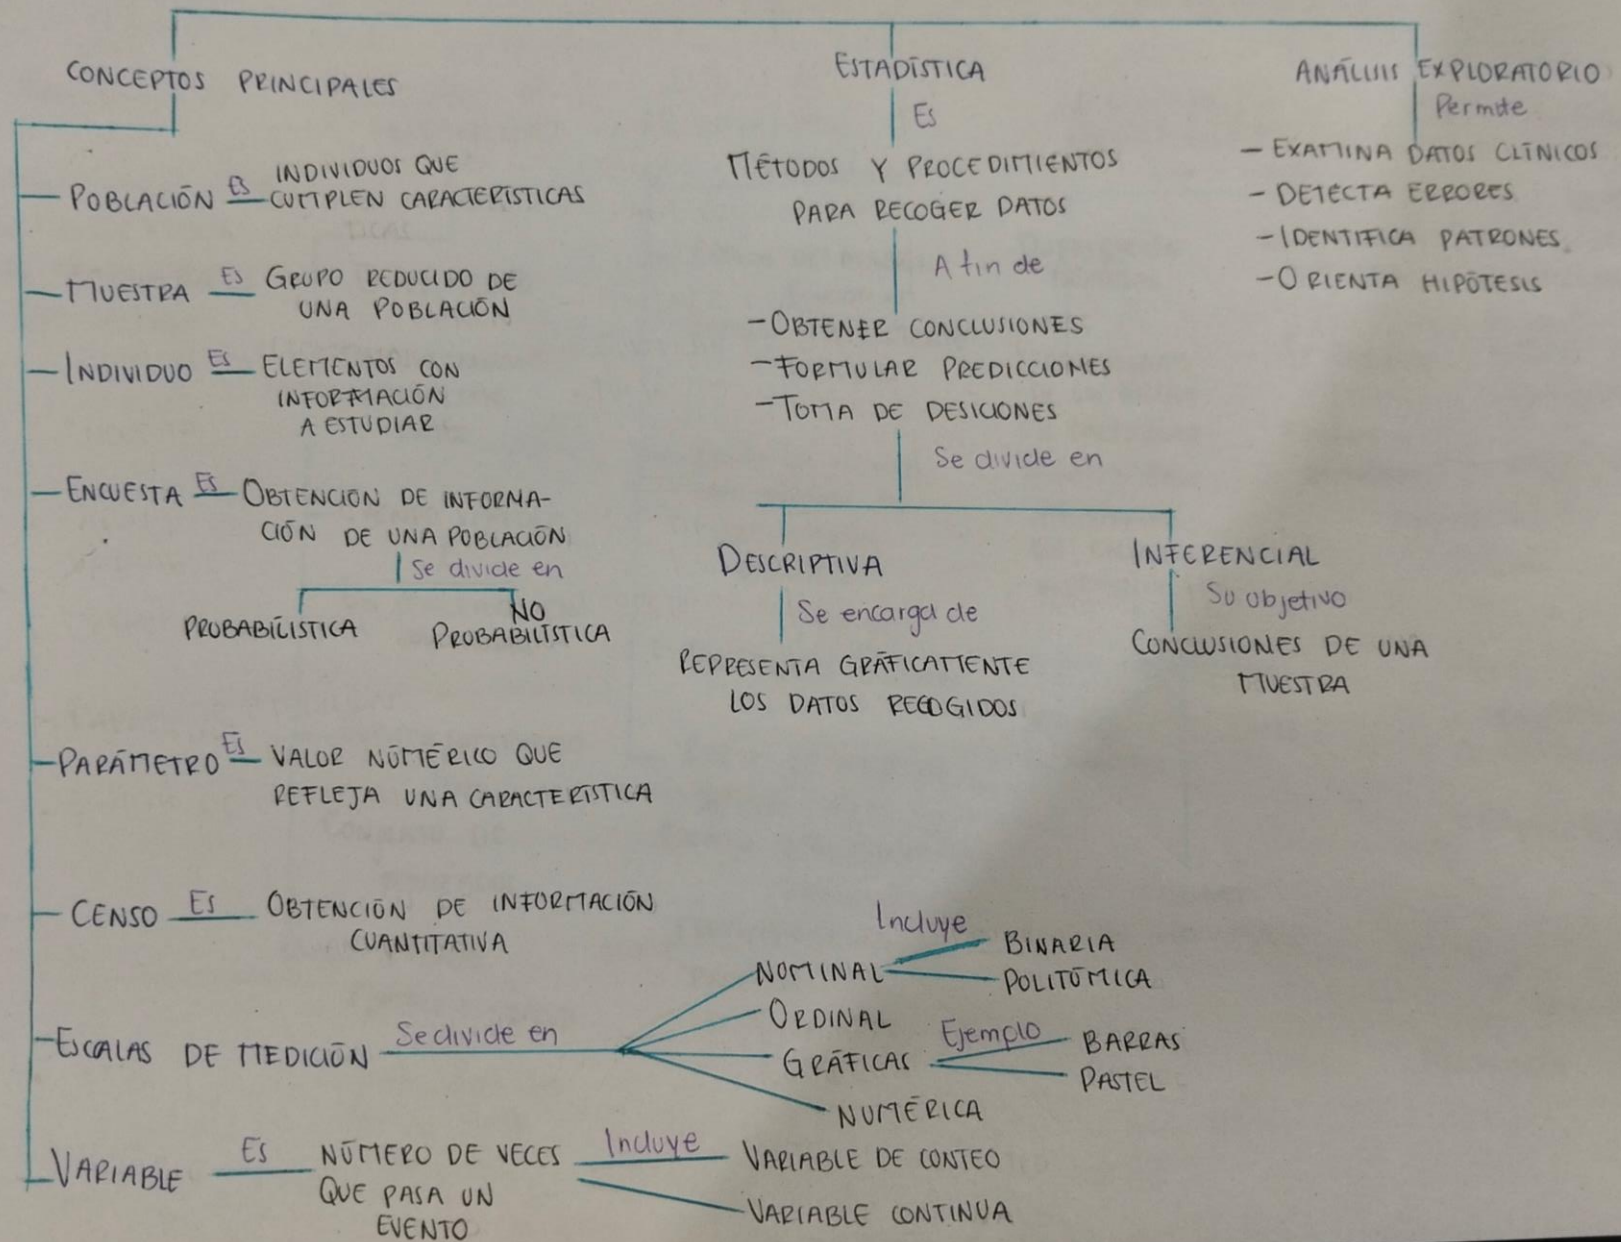 CONCEPTOS PRINCIPALES
POBLACIÓN Es INDIVIDUOS QUE
CUMPLEN CARACTERÍSTICAS
MUESTRA Es GRUPO REDUCIDO DE
UNA POBLACIÓN
INDIVIDUO Es ELEMENTOS CON
INFORMACIÓN
A ESTUDIAR
ENCUESTA Es OBTENCION DE INFORMA-
CIÓN DE UNA POBLACIÓN
Se divide en
PROBABILÍSTICA
NO
PROBABILÍSTICA
PARÁMETRO Es VALOR NÚMÉRICO QUE
REFLEJA UNA CARACTERÍSTICA
CENSO Es OBTENCIÓN DE INFORMACIÓN
CUANTITATIVA
ESCALAS DE MEDICIÓN Se divide en
NOMINAL Incluye BINARIA
POLITÓMICA
ORDINAL
GRÁFICAS Ejemplo BARRAS
PASTEL
NUMÉRICA
VARIABLE Es NÚMERO DE VECES Incluye VARIABLE DE CONTEO
QUE PASA UN
EVENTO
VARIABLE CONTINUA
ESTADÍSTICA
Es
MÉTODOS Y PROCEDIMIENTOS
PARA RECOGER DATOS
A fin de
-OBTENER CONCLUSIONES
-FORMULAR PREDICCIONES
-TOMA DE DESICIONES
Se divide en
DESCRIPTIVA
Se encarga de
REPRESENTA GRÁFICAMENTE
LOS DATOS RECOGIDOS
INFERENCIAL
Su objetivo
CONCLUSIONES DE UNA
MUESTRA
ANÁLISIS EXPLORATORIO
Permite
- EXAMINA DATOS CLÍNICOS
- DETECTA ERRORES
- IDENTIFICA PATRONES
- ORIENTA HIPÓTESIS